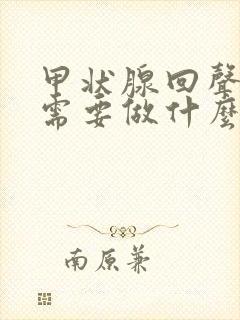 甲状腺回聲
需要做什麼
南原兼